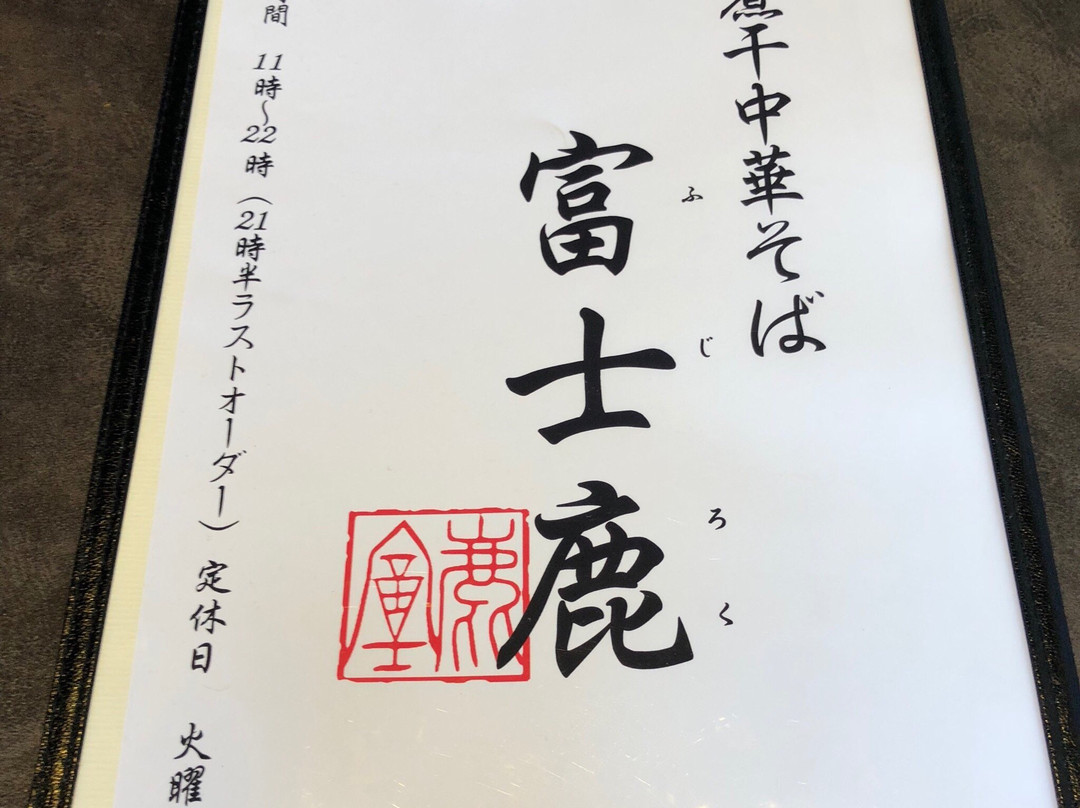 煮干中華そば
富士鹿
ふじろく
間 11時~22時(21時半ラストオーダー) 定休日 火曜